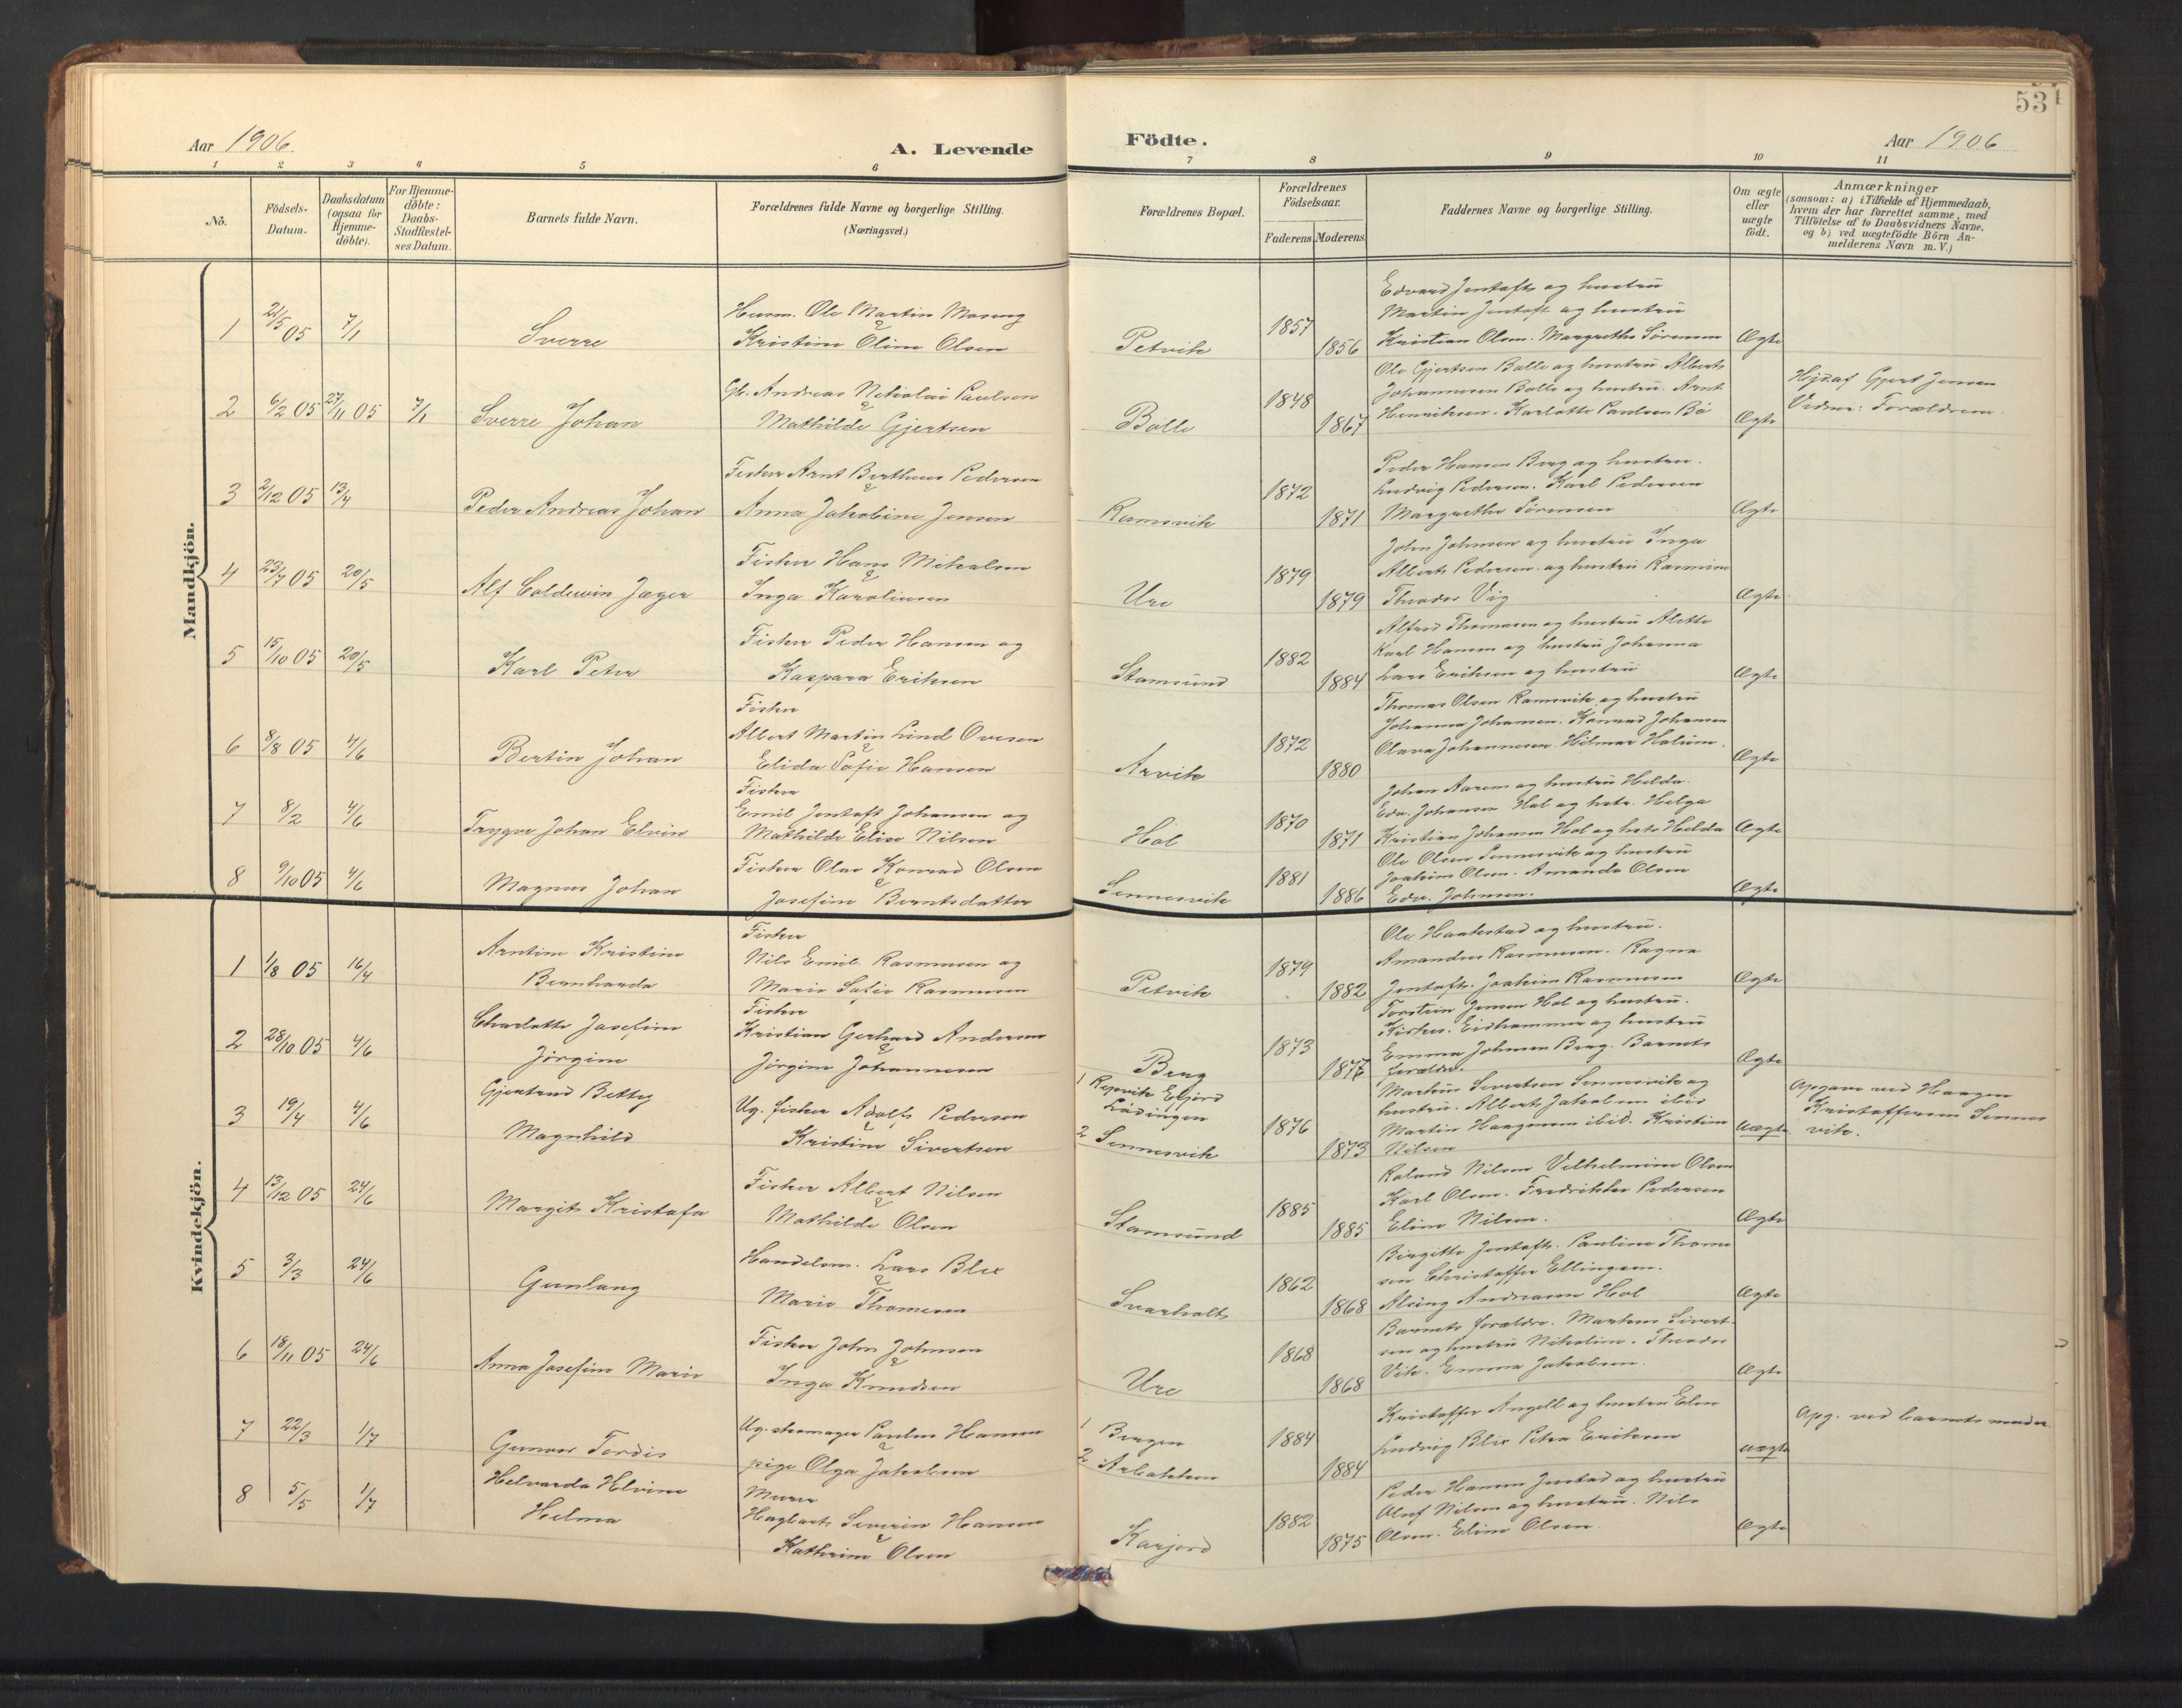 531
Aar 1906.
A. Levende
Födte.
Aar 1906
1 2 3 4 5 6 7 8 9 10 11
No.
Födsels-
Datum.
Daabsdatum
(ogsaa for
Hjemme-
döbte).
For Hjemme-
döbte:
Daabs-
Stadfæstel-
ses Datum.
Barnets fulde Navn.
Forældrenes fulde Navne og borgerlige Stilling.
(Næringsvei.)
Forældrenes Bopæl.
Forældrenes
Födselsaar.
Faderens. Moderens.
Faddernes Navne og borgerlige Stilling.
Om ægte
eller
uægte
födt.
Anmærkninger
(saasom: a) i Tilfælde af Hjemmedaab,
hvem der har forrettet samme, med
Tilföielse af to Daabsvidners Navne,
og b) ved uægtefödte Börn An-
melderens Navn m. V.)
Mandkjön.
1 21/5 05 7/1 Sverre
Husm. Ole Martin Moseng
&
Kristine Oline Olsen
Petvik 1857 1856
Edvard Jentoft og hustru
Martin Jentoft og hustru
Kristian Olsen. Margrethe Sörensen Ægte
2 6/2 05 27/11 05 7/1 Sverre Johan
Gb. Andreas Nikolai Paulsen
&
Mathilde Gjertsen
Bolle 1848 1867
Ole Gjertsen Bolle og hustru. Alberts
Johannesen Bolle og hustru. Arnt
Henriksen. Karlotte Paulsen Bö Ægte
Hjd. af Gjert Jensen
Vidner: Forældrene.
3 2/12 05 13/4 Peder Andreas Johan
Fisker Arnt Bertheus Pedersen
&
Anna Jakobine Jensen
Ramsvik 1872 1871
Peder Hansen Berg og hustru.
Ludvig Pedersen. Karl Pedersen
Margrethe Sörensen Ægte
4 23/7 05 20/5 Alf Coldevin Jæger
Fisker Hans Mikalsen
&
Inga Karolinsen
Ure 1879 1879
John Johnsen og hustru Inga
Albert Pedersen og hustru Rasmine
Theodor Vig Ægte
5 15/10 05 20/5 Karl Peter
Fisker Peder Hansen og
Kaspara Eriksen
Stamsund 1882 1884
Alfred Thomasen og hustru Alette
Karl Hansen og hustru Johanna
Lars Eriksen og hustru Ægte
6 8/8 05 4/6 Bertin Johan
Fisker
Albert Martin Lind Ovesen
&
Elida Sofie Hansen
Arvik 1872 1880
Thomas Olsen Ramsvik og hustru
Johanna Johansen. Konrad Johansen
Olava Johannesen. Hilmar Holum. Ægte
7 8/2 4/6 Trygve Johan Elvin
Fisker
Emil Jentoft Johansen og
Mathilde Elise Nilsen
Hol 1870 1871
Johan Aasen og hustru Helda
Edv. Johansen Hol og hstr. Helga
Kristian Johansen Hol og hstr Helda Ægte
8 9/10 05 4/6 Magnus Johan
Fisker Olav Konrad Olsen
&
Josefine Berntsdatter
Sennesvik 1881 1886
Ole Olsen Sennesvik og hustru
Joakim Olsen. Amanda Olsen
Edv. Johnsen. Ægte
Kvindekjön.
1 1/8 05 16/4 Arntine Kristine
Bernharda
Fisker
Nils Emil Rasmussen og
Marie Sofie Rasmussen
Petvik 1879 1882
Ole Haakestad og hustru.
Amandus Rasmussen. Ragna
Jentoft. Joakim Rasmussen Ægte
2 28/10 05 4/6 Charlotte Josefine
Jörgine
Fisker
Kristian Gerhard Andersen
&
Jörgine Johannesen
Berg 1873 1877
Torstein Jensen Hol og hustru.
Kirkes. Eidhammer og hustru
Emma Johnsen Berg. Barnets
forældre. Ægte
3 19/4 4/6 Gjertrud Betty
Magnhild
Ug. fisker Adolf Pedersen
&
Kristine Sivertsen
1 Repvik Efjord
Lödingen
2 Sennesvik 1876 1873
Martin Sivertsen Sennesvik og
hustru. Albert Jakobsen ibid
Martin Haagensen ibid. Kristine
Nilsen uægte
Opgave ved Haagen
Kristoffersen Sennes
vik.
4 13/12 05 24/6 Margit Kristofa
Fisker Albert Nilsen
&
Mathilde Olsen
Stamsund 1885 1885
Roland Nilsen Vilhelmine Olsen
Karl Olsen. Fredrikke Pedersen
Eline Nilsen. Ægte
5 3/3 24/6 Gunlaug
Handelsm. Lars Blix
&
Marie Thomesen
Svarholt 1862 1868
Birgitte Jentoft. Pauline Thome
sen Christoffer Ellingsen.
Alving Andreasen Hol Ægte
6 18/11 05 24/6 Anna Josefine Marie
Fisker John Johnsen
&
Inga Knudsen
Ure 1868 1868
Barnets forældre. Martens Sivert
sen og hustru Nikoline. Theodor
Vik. Emma Jakobsen. Ægte
7 22/3 1/7 Gunvor Tordis
Ug. skomager Paulus Hansen
&
pige Olga Jakobsen
1 Bergen
2 Arbakken 1884 1884
Kristoffer Angell og hustru Elen
Ludvig Blix Petra Eriksen uægte
Opg. ved barnets moder.
8 5/5 1/7 Helvarda Elvine
Helma
Murer
Hagbart Severin Hansen
&
Kathrine Olsen
Karjord 1882 1875
Peder Hansen Justad og hustru
Olaf Nilsen og hustru. Nils
Olsen. Eline Olsen. Ægte